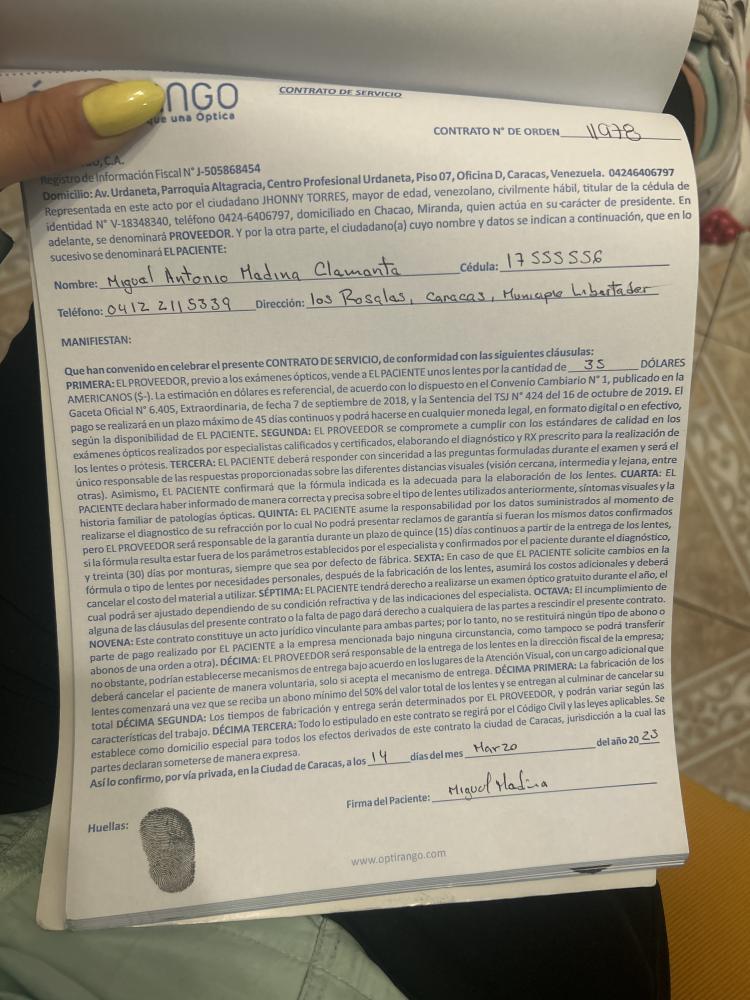 NGO
que una Óptica
CONTRATO DE SERVICIO
CONTRATO N° DE ORDEN 11978
, C.A.
Registro de Información Fiscal N° J-505868454
Domicilio: Av. Urdaneta, Parroquia Altagracia, Centro Profesional Urdaneta, Piso 07, Oficina D, Caracas, Venezuela. 04246406797
Representada en este acto por el ciudadano JHONNY TORRES, mayor de edad, venezolano, civilmente hábil, titular de la cédula de
identidad N° V-18348340, teléfono 0424-6406797, domiciliado en Chacao, Miranda, quien actúa en su carácter de presidente. En
adelante, se denominará PROVEEDOR. Y por la otra parte, el ciudadano(a) cuyo nombre y datos se indican a continuación, que en lo
sucesivo se denominará EL PACIENTE:
Nombre: Miguel Antonio Madina Clamanta Cédula: 17555556
Teléfono: 0412 2115339 Dirección: los Rosalas, Caracas, Municipio Libertador
MANIFIESTAN:
Que han convenido en celebrar el presente CONTRATO DE SERVICIO, de conformidad con las siguientes cláusulas:
PRIMERA: EL PROVEEDOR, previo a los exámenes ópticos, vende a EL PACIENTE unos lentes por la cantidad de 35 DÓLARES
AMERICANOS ($-). La estimación en dólares es referencial, de acuerdo con lo dispuesto en el Convenio Cambiario N° 1, publicado en la
Gaceta Oficial N° 6.405, Extraordinaria, de fecha 7 de septiembre de 2018, y la Sentencia del TSJ N° 424 del 16 de octubre de 2019. El
pago se realizará en un plazo máximo de 45 días continuos y podrá hacerse en cualquier moneda legal, en formato digital o en efectivo,
según la disponibilidad de EL PACIENTE. SEGUNDA: EL PROVEEDOR se compromete a cumplir con los estándares de calidad en los
exámenes ópticos realizados por especialistas calificados y certificados, elaborando el diagnóstico y RX prescrito para la realización de
los lentes o prótesis. TERCERA: EL PACIENTE deberá responder con sinceridad a las preguntas formuladas durante el examen y será el
único responsable de las respuestas proporcionadas sobre las diferentes distancias visuales (visión cercana, intermedia y lejana, entre
otras). Asimismo, EL PACIENTE confirmará que la fórmula indicada es la adecuada para la elaboración de los lentes. CUARTA: EL
PACIENTE declara haber informado de manera correcta y precisa sobre el tipo de lentes utilizados anteriormente, síntomas visuales y la
historia familiar de patologías ópticas. QUINTA: EL PACIENTE asume la responsabilidad por los datos suministrados al momento de
realizarse el diagnostico de su refracción por lo cual No podrá presentar reclamos de garantía si fueran los mismos datos confirmados
pero EL PROVEEDOR será responsable de la garantía durante un plazo de quince (15) días continuos a partir de la entrega de los lentes,
si la fórmula resulta estar fuera de los parámetros establecidos por el especialista y confirmados por el paciente durante el diagnóstico,
y treinta (30) días por monturas, siempre que sea por defecto de fábrica. SEXTA: En caso de que EL PACIENTE solicite cambios en la
fórmula o tipo de lentes por necesidades personales, después de la fabricación de los lentes, asumirá los costos adicionales y deberá
cancelar el costo del material a utilizar. SÉPTIMA: EL PACIENTE tendrá derecho a realizarse un examen óptico gratuito durante el año, el
cual podrá ser ajustado dependiendo de su condición refractiva y de las indicaciones del especialista. OCTAVA: El incumplimiento de
alguna de las cláusulas del presente contrato o la falta de pago dará derecho a cualquiera de las partes a rescindir el presente contrato.
NOVENA: Este contrato constituye un acto jurídico vinculante para ambas partes; por lo tanto, no se restituirá ningún tipo de abono o
parte de pago realizado por EL PACIENTE a la empresa mencionada bajo ninguna circunstancia, como tampoco se podrá transferir
abonos de una orden a otra). DÉCIMA: EL PROVEEDOR será responsable de la entrega de los lentes en la dirección fiscal de la empresa;
no obstante, podrían establecerse mecanismos de entrega bajo acuerdo en los lugares de la Atención Visual, con un cargo adicional que
deberá cancelar el paciente de manera voluntaria, solo si acepta el mecanismo de entrega. DÉCIMA PRIMERA: La fabricación de los
lentes comenzará una vez que se reciba un abono mínimo del 50% del valor total de los lentes y se entregan al culminar de cancelar su
total DÉCIMA SEGUNDA: Los tiempos de fabricación y entrega serán determinados por EL PROVEEDOR, y podrán variar según las
características del trabajo. DÉCIMA TERCERA: Todo lo estipulado en este contrato se regirá por el Código Civil y las leyes aplicables. Se
establece como domicilio especial para todos los efectos derivados de este contrato la ciudad de Caracas, jurisdicción a la cual las
partes declaran someterse de manera expresa.
Así lo confirmo, por vía privada, en la Ciudad de Caracas, a los 14 días del mes Marzo del año 2025
Firma del Paciente: Miguel Madina
Huellas:
www.optirango.com